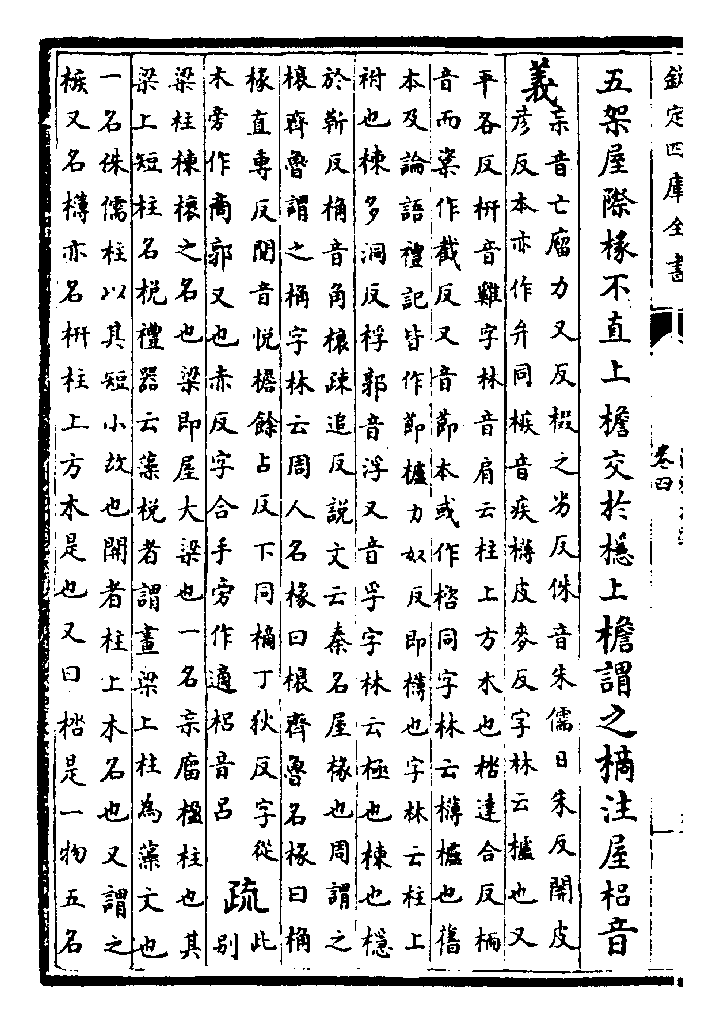 欽定四庫全書
卷四
五架屋際椽不直上檐交於檼上檐謂之樀注屋梠音
義
㝱音亡廇力又反棳之劣反侏音朱儒日朱反開皮
彦反本亦作弁同㮨音疾欂皮麥反字林云櫨也又
平各反枅音雞字林音肩云柱上方木也楷達合反楄
音而楶作截反又音節本或作㮞同字林云欂櫨也舊
本及論語禮記皆作節櫨力奴反即欂也字林云柱上
柎也棟多洞反桴郭音浮又音孚字林云極也棟也檼
於靳反桷音角榱疎追反説文云秦名屋椽也周謂之
榱齊魯謂之桷字林云周人名椽曰榱齊魯名椽曰桷
椽直專反閱音悦檐餘占反下同樀丁狄反字從此
木旁作啇郭又也赤反字合手旁作適梠音吕
疏
别
梁柱棟榱之名也梁即屋大梁也一名㝱廇楹柱也其
梁上短柱名梲禮器云藻梲者謂畫梁上柱為藻文也
一名侏儒柱以其短小故也開者柱上木名也又謂之
㮨又名欂亦名枅柱上方木是也又曰楷是一物五名